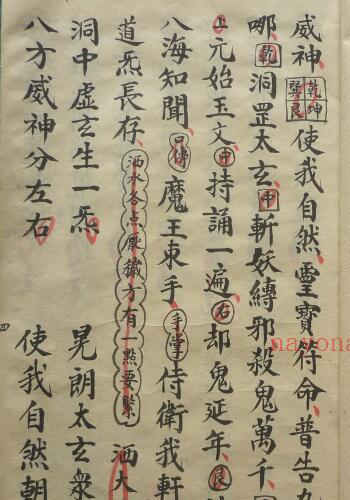 威神乾坤巽艮使我自然靈寶符命普告九
哪乾洞罡太玄中斬妖縛邪殺鬼萬千
上元始玉文中持誦一遍右却鬼延年艮
八海知聞口傳魔王束手手掌侍衛我軒
道炁長存洒水各点厭穢方有一點要緊洒大
洞中虛玄生一炁晃朗太玄衆
八方威神分左右使我自然朝
四
nayona